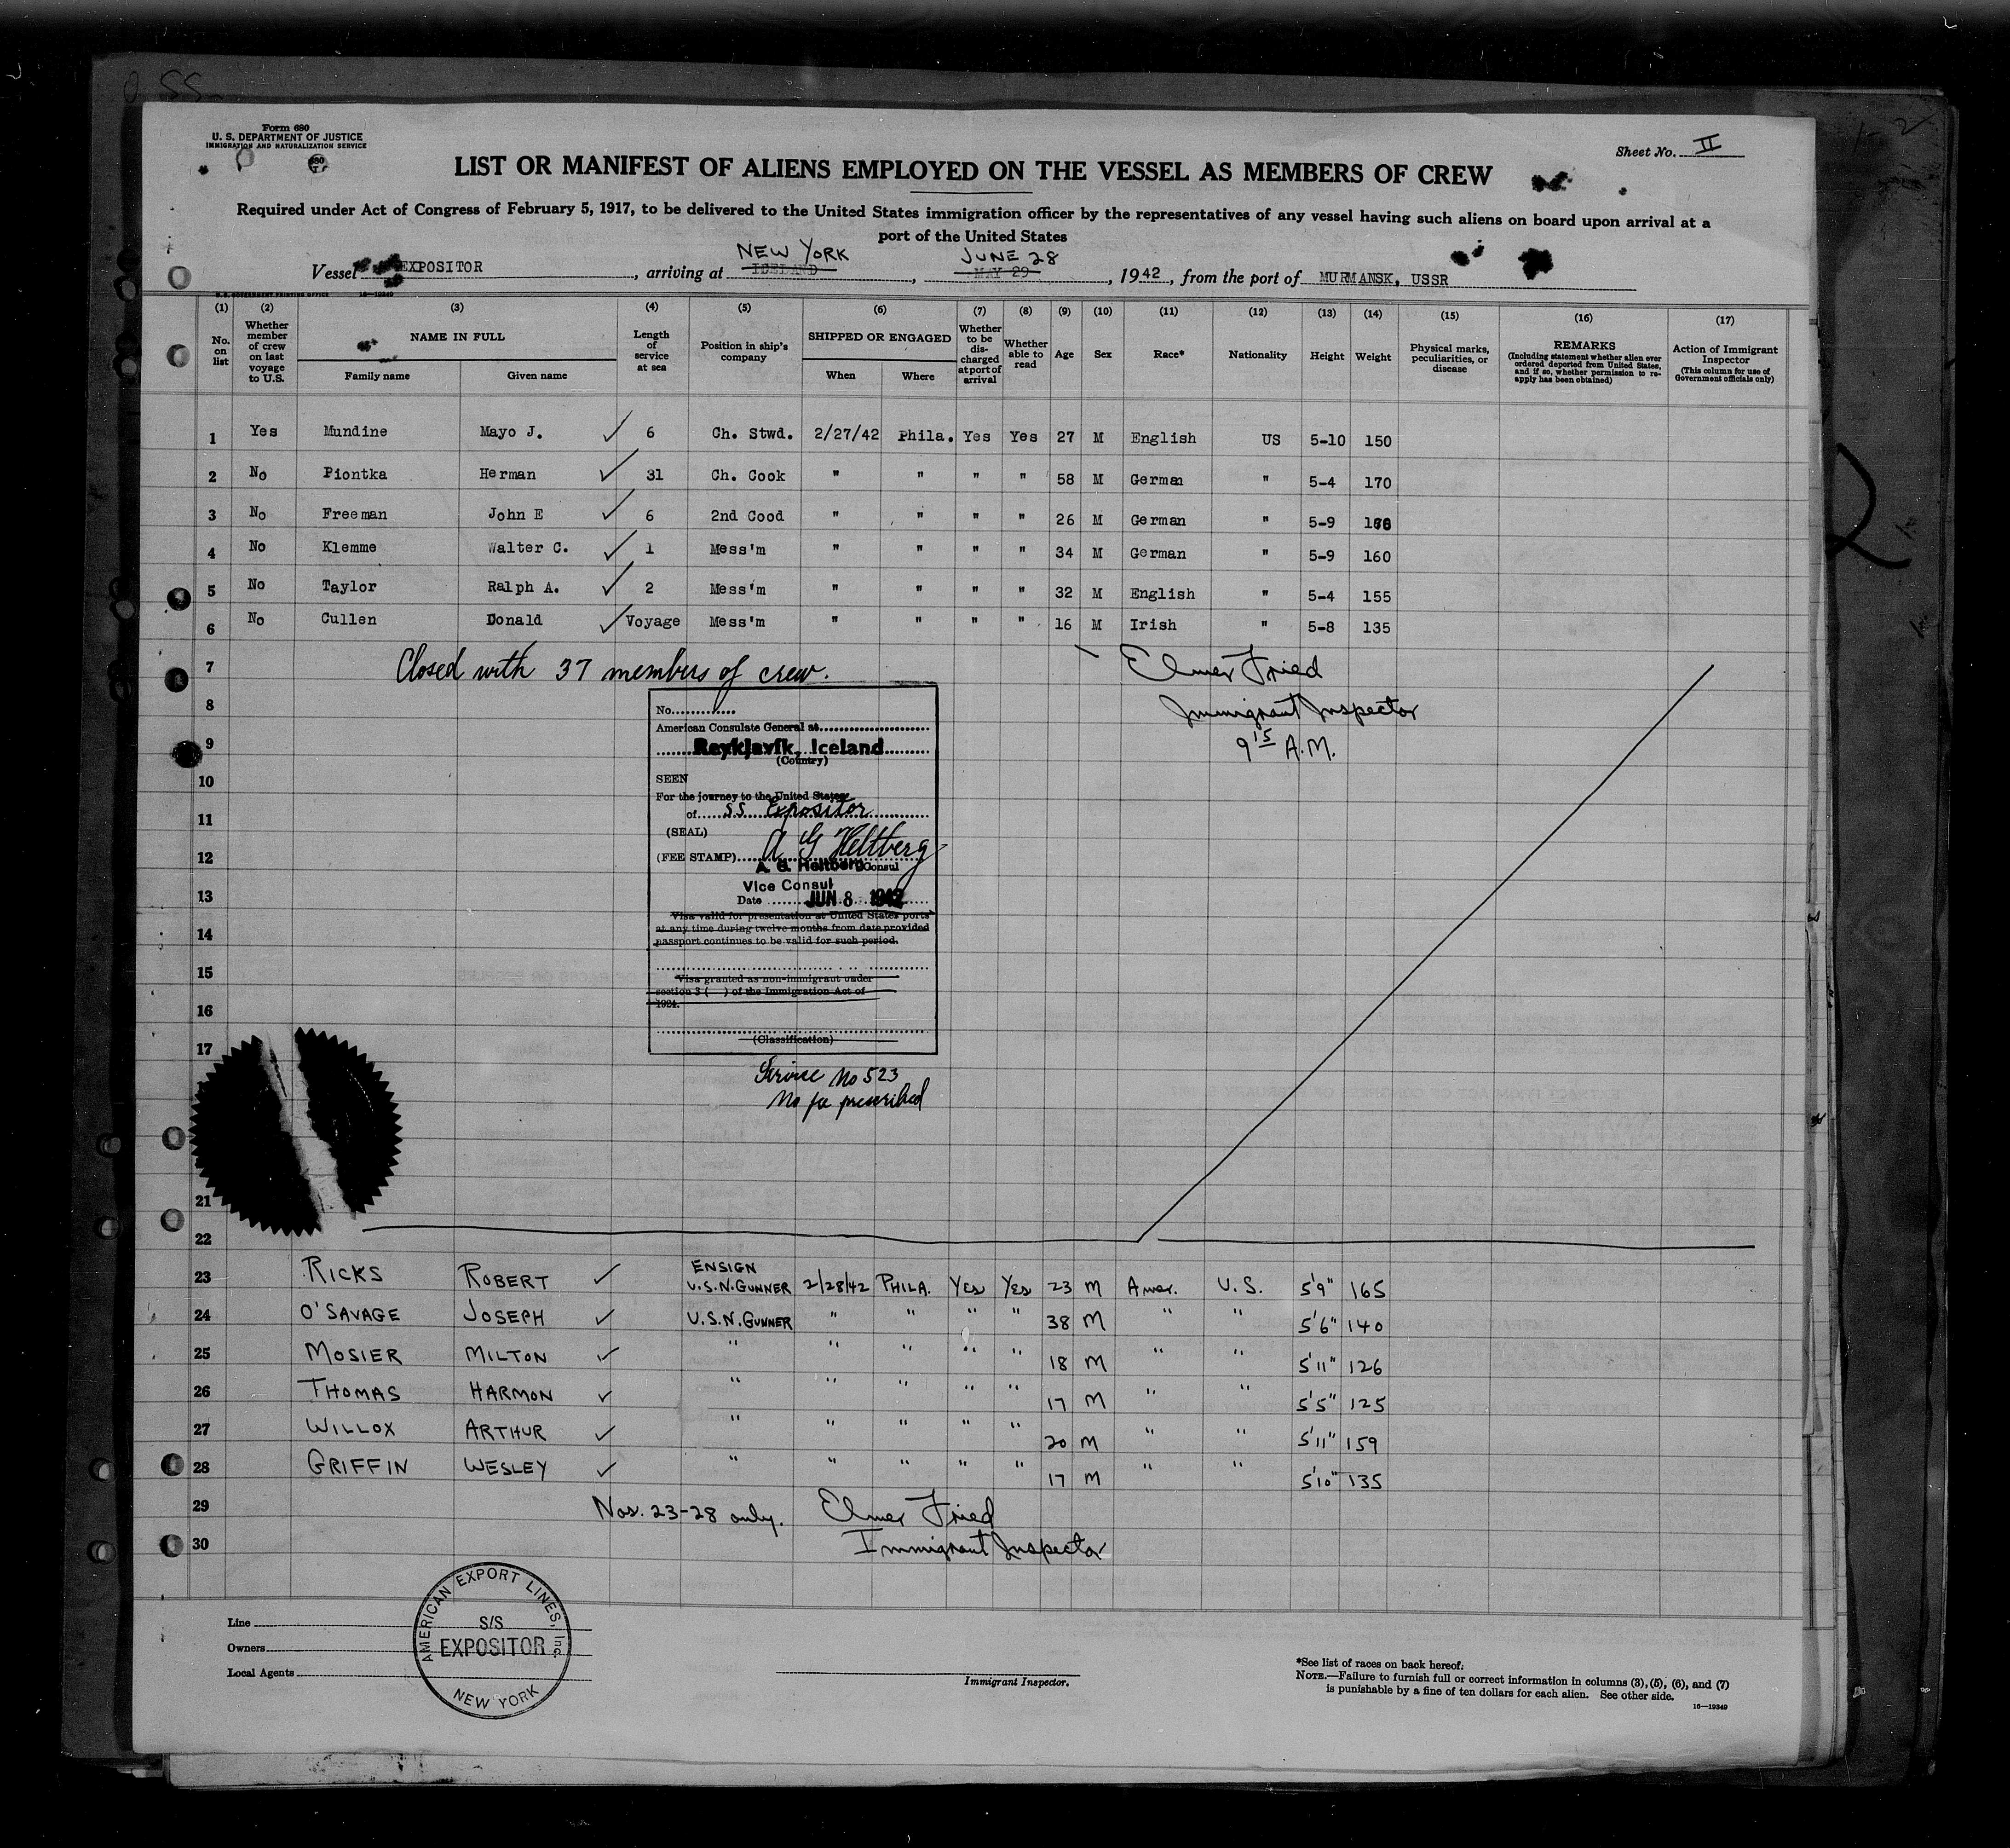 Form 680
U. S. DEPARTMENT OF JUSTICE
IMMIGRATION AND NATURALIZATION SERVICE
Sheet No. II
LIST OR MANIFEST OF ALIENS EMPLOYED ON THE VESSEL AS MEMBERS OF CREW
Required under Act of Congress of February 5, 1917, to be delivered to the United States immigration officer by the representatives of any vessel having such aliens on board upon arrival at a
port of the United States
NEW YORK JUNE 28
Vessel EXPOSITOR, arriving at ICELAND, MAY 29, 1942, from the port of MURMANSK, USSR
(1) (2) (3) (4) (5) (6) (7) (8) (9) (10) (11) (12) (13) (14) (15) (16) (17)
No. on list
Whether member of crew on last voyage to U.S.
NAME IN FULL
Family name Given name
Length of service at sea
Position in ship's company
SHIPPED OR ENGAGED
When Where
Whether to be discharged at port of arrival
Whether able to read
Age Sex Race* Nationality Height Weight
Physical marks, peculiarities, or disease
REMARKS
(Including statement whether alien ever ordered deported from United States, and if so, whether permission to re-apply has been obtained)
Action of Immigrant Inspector
(This column for use of Government officials only)
1 Yes Mundine Mayo J. ✓ 6 Ch. Stwd. 2/27/42 Phila. Yes Yes 27 M English US 5-10 150
2 No Piontka Herman ✓ 31 Ch. Cook " " " " 58 M German " 5-4 170
3 No Freeman John E ✓ 6 2nd Cood " " " " 26 M German " 5-9
4 No Klemme Walter C. ✓ 1 Mess'm " " " " 34 M German " 5-9 160
5 No Taylor Ralph A. ✓ 2 Mess'm " " " " 32 M English " 5-4 155
6 No Cullen Donald ✓ Voyage Mess'm " " " " 16 M Irish " 5-8 135
7 Closed with 37 members of crew. Elmer Fried
8 Immigrant Inspector
9 9 15 A.M.
10
11
12
13
14
15
16
17
21
22
No.
American Consulate General at
Reykjavik, Iceland
(Country)
SEEN
For the journey to the United States
of SS Expositor
(SEAL)
A G Heltberg
(FEE STAMP)
A. G. Heltberg Consul
Vice Consul
Date JUN 8 1942
Visa valid for presentation at United States ports
at any time during twelve months from date provided
passport continues to be valid for such period.
Visa granted as non-immigrant under
section 3 ( ) of the Immigration Act of
1924.
(Classification)
Service No 523
No fee prescribed
23 RICKS ROBERT ✓ ENSIGN U.S.N. GUNNER 2/28/42 PHILA. Yes Yes 23 M Amer. U.S. 5'9" 165
24 O'SAVAGE JOSEPH ✓ U.S.N. GUNNER " " " " 38 M " " 5'6" 140
25 MOSIER MILTON ✓ " " " " " 18 M " " 5'11" 126
26 THOMAS HARMON ✓ " " " " " 17 M " " 5'5" 125
27 WILLOX ARTHUR ✓ " " " " " 20 M " " 5'11" 159
28 GRIFFIN WESLEY ✓ " " " " " 17 M " " 5'10" 135
29 Nos. 23-28 only. Elmer Fried
30 Immigrant Inspector
Line
Owners
Local Agents
AMERICAN EXPORT LINES, Inc.
S/S
EXPOSITOR
NEW YORK
Immigrant Inspector.
*See list of races on back hereof.
NOTE.—Failure to furnish full or correct information in columns (3), (5), (6), and (7)
is punishable by a fine of ten dollars for each alien. See other side.
16—19349